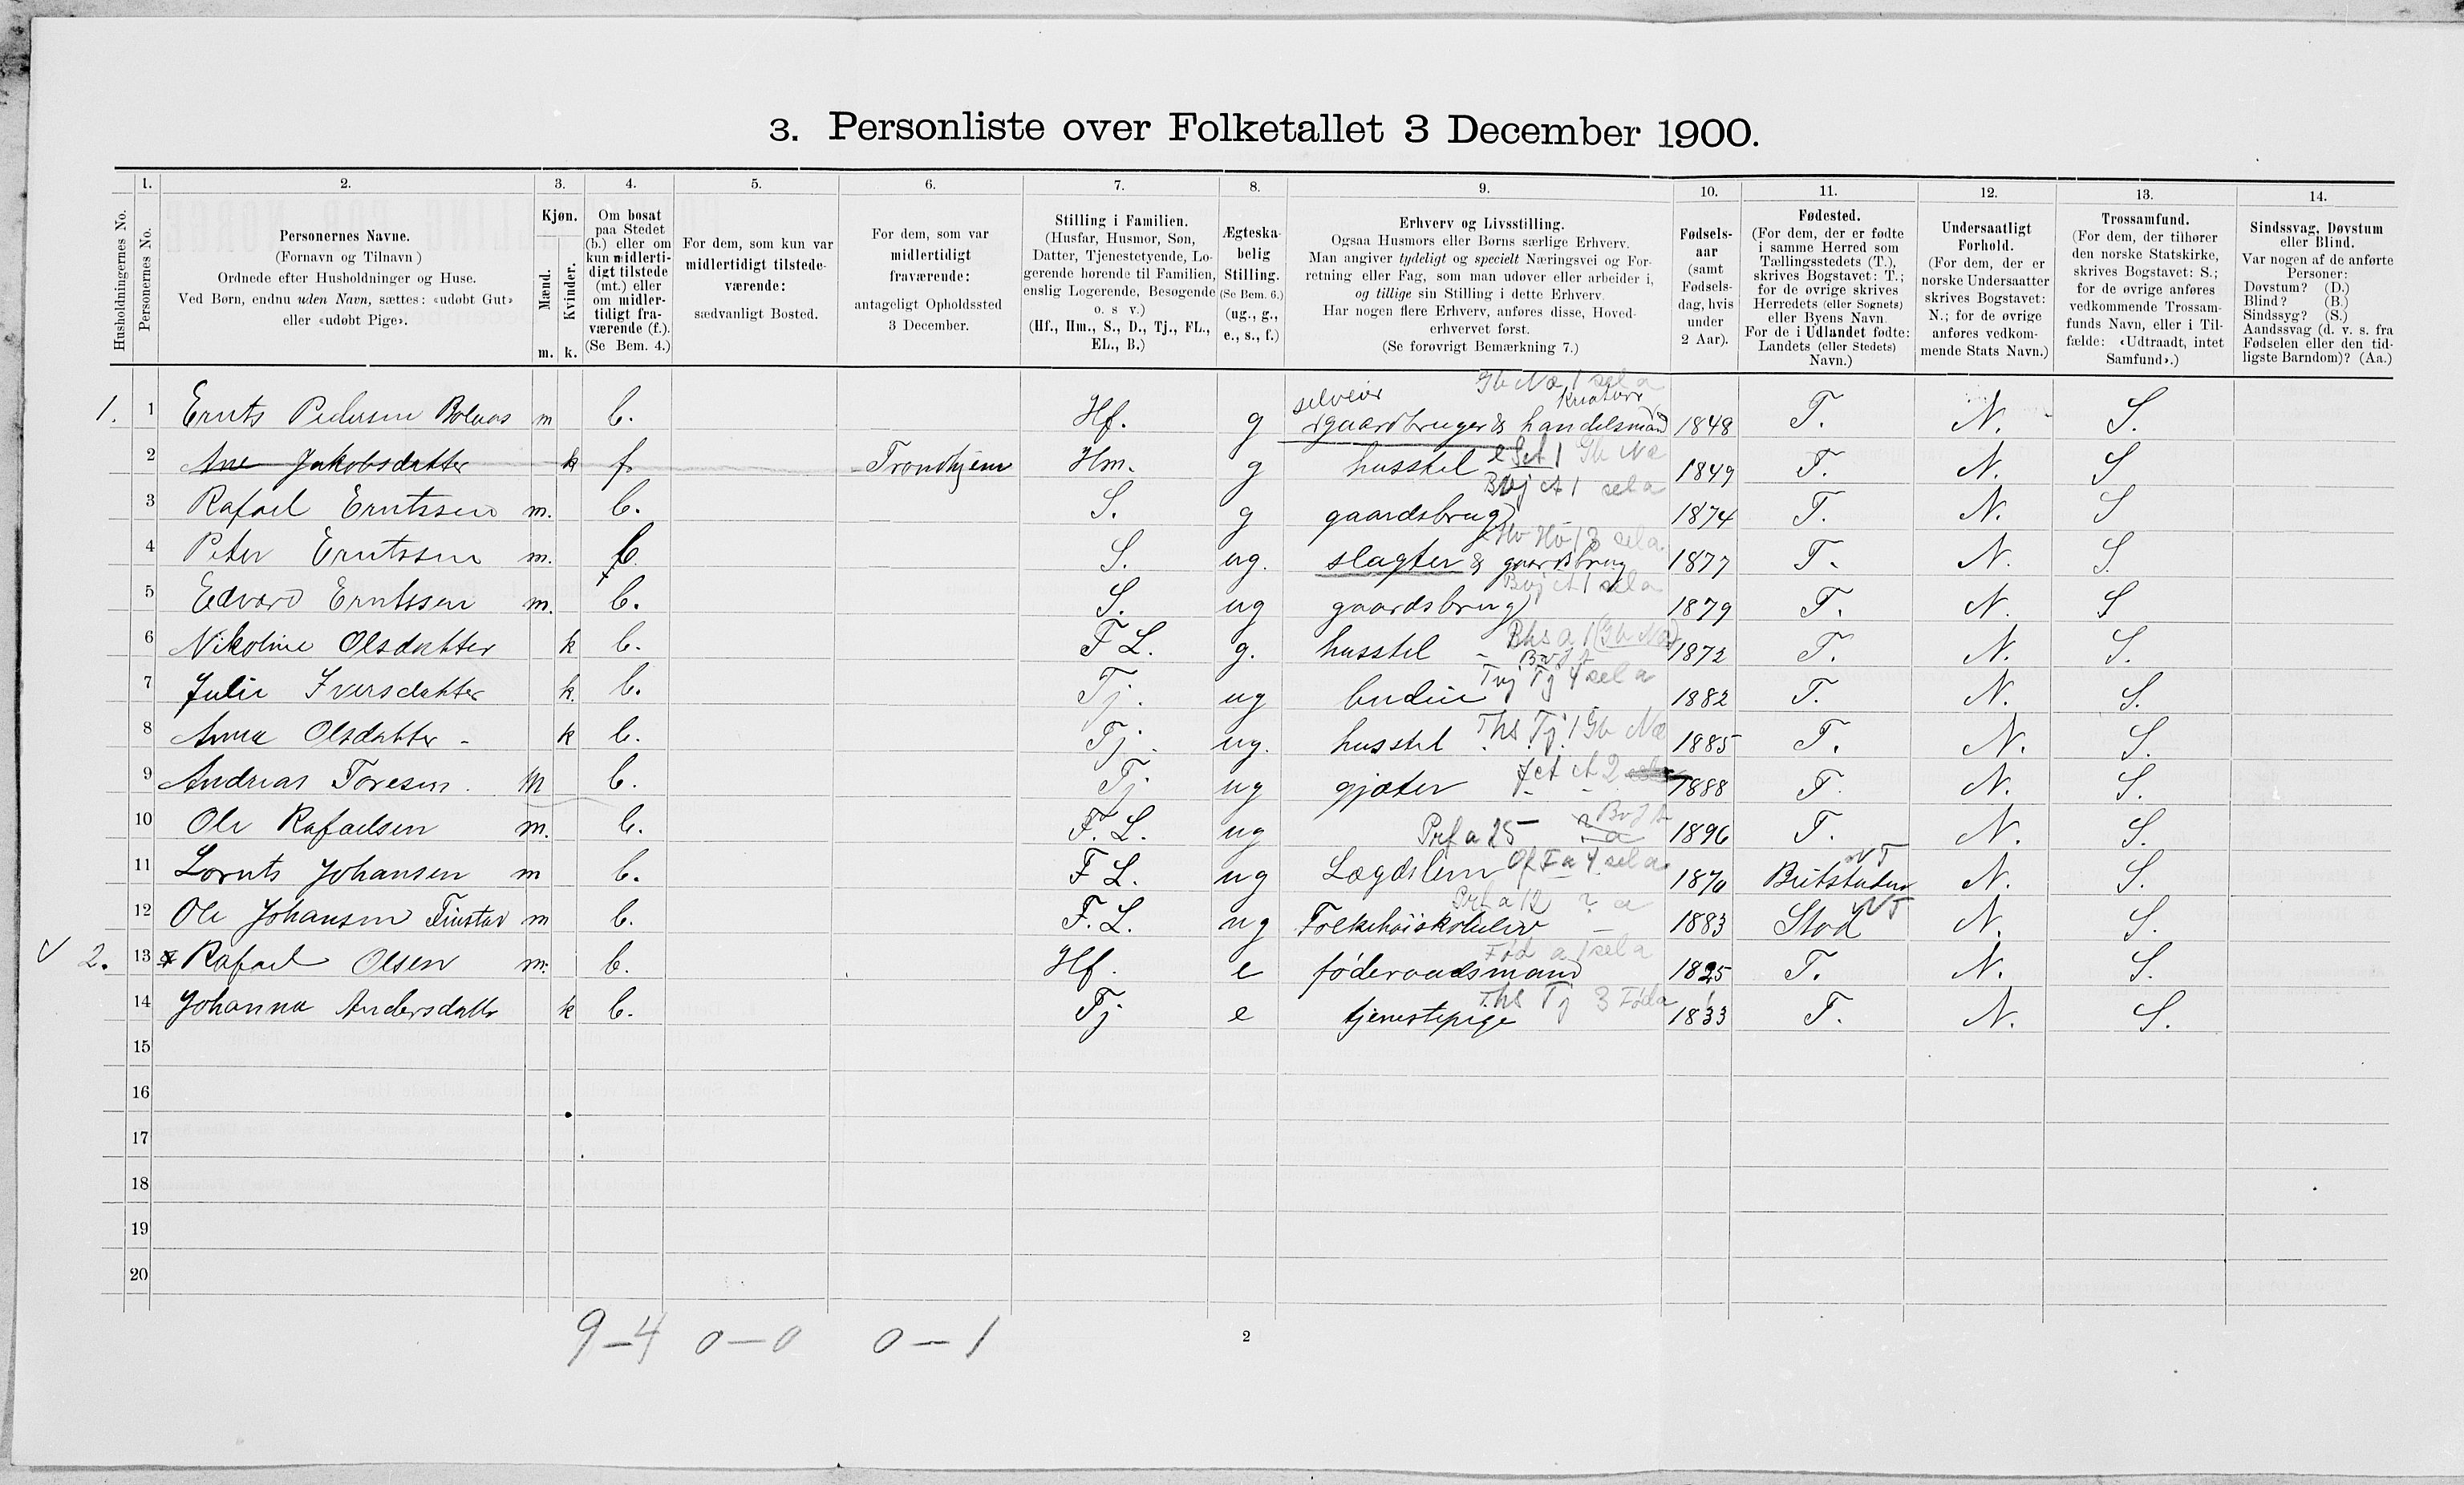 3. Personliste over Folketallet 3 December 1900.
1. 2. 3. 4. 5. 6. 7. 8. 9. 10. 11. 12. 13. 14.
Husholdningernes No.
Personernes No.
Personernes Navne.
(Fornavn og Tilnavn)
Ordnede efter Husholdninger og Huse.
Ved Børn, endnu uden Navn, sættes: «udøbt Gut»
eller «udøbt Pige».
Kjøn.
Mænd.
Kvinder.
m. k.
Om bosat
paa Stedet
(b.) eller om
kun midlerti-
digt tilstede
(mt.) eller
om midler-
tidigt fra-
værende (f.).
(Se Bem. 4.)
For dem, som kun var
midlertidigt tilstede-
værende:
sædvanligt Bosted.
For dem, som var
midlertidigt
fraværende:
antageligt Opholdssted
3 December.
Stilling i Familien.
(Husfar, Husmor, Søn,
Datter, Tjenestetyende, Lo-
gerende hørende til Familien,
enslig Logerende, Besøgende
o. s v.)
(Hf., Hm., S., D., Tj., FL.,
EL., B.)
Ægteska-
belig
Stilling.
(Se Bem. 6.)
(ug., g.,
e., s., f.)
Erhverv og Livsstilling.
Ogsaa Husmors eller Børns særlige Erhverv.
Man angiver tydeligt og specielt Næringsvei og For-
retning eller Fag, som man udøver eller arbeider i,
og tillige sin Stilling i dette Erhverv.
Har nogen flere Erhverv, anføres disse, Hoved-
erhvervet først.
(Se forøvrigt Bemærkning 7.)
Fødsels-
aar
(samt
Fødsels-
dag, hvis
under
2 Aar).
Fødested.
(For dem, der er fødte
i samme Herred som
Tællingsstedets (T.),
skrives Bogstavet: T.;
for de øvrige skrives
Herredets (eller Sognets)
eller Byens Navn.
For de i Udlandet fødte:
Landets (eller Stedets)
Navn.)
Undersaatligt
Forhold.
(For dem, der er
norske Undersaatter
skrives Bogstavet:
N.; for de øvrige
anføres vedkom-
mende Stats Navn.)
Trossamfund.
(For dem, der tilhører
den norske Statskirke,
skrives Bogstavet: S.;
for de øvrige anføres
vedkommende Trossam-
funds Navn, eller i Til-
fælde: «Udtraadt, intet
Samfund».)
Sindssvag, Døvstum
eller Blind.
Var nogen af de anførte
Personer:
Døvstum? (D.)
Blind? (B.)
Sindssyg? (S.)
Aandssvag (d. v. s. fra
Fødselen eller den tid-
ligste Barndom)? (Aa.)
Gb Næ 1 sel a
selveier Kreatur
1. 1 Ernts Pedersen m b. Hf. g gaardbruger & handelsmand 1848 T. N. S.
2 Ane Jakobsdatter k f. Trondhjem Hm. g husstel 1849 T. N. S
3 Rafael Erntssen m. b. S. g gaardsbrug 1874 T. N. S
4 Peter Erntssen m. b S. ug. slagter & gaardsbrug 1877 T. N. S.
5 Edvard Erntssen m. b. S. ug gaardsbrug 1879 T. N. S
6 Nikoline Olsdatter k b. F L. g. husstel 1872 T. N. S.
7 Julie Iversdatter k. b. Tj. ug budeie 1882 T. N. S.
8 Anna Olsdatter - k b. Tj. ug. husstel Ths Tj 1 Gb Næ 1885 T. N. S.
9 Andreas Toresen. m b. Tj ug gjæter 1888 T. N. S.
10 Ole Rafaelsen m. b. F. L. ug Prf a 25 1896 T. N. S.
11 Lornts Johansen m b. F L. ug Lægdslem 1870 Beitstaden NT N. S.
12 Ole Johansen Finstad m b. F. L. ug Folkehøiskoleelev 1883 Stod NT N. S.
2. 13 Rafael Olsen m. b. Hf. e føderaadsmand Fød a 1 sel a 1825 T. N. S.
14 Johanna Andersdatter k b. Tj e tjenestepige Ths Tj 3 Føda 1833 T. N. S.
15
16
17
18
19
20
9–4 0–0 0–1
2